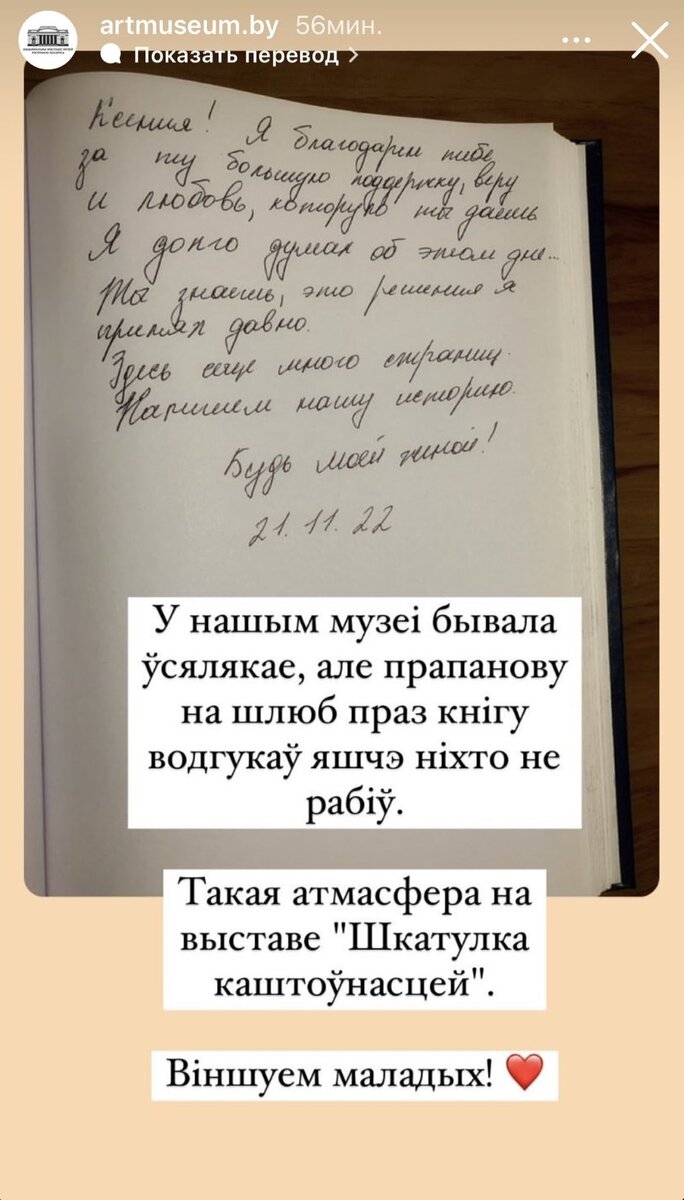 artmuseum.by 56мин.
Показать перевод >
Ксения! Я благодарен тибе
за ту большую поддержку, веру
и любовь, которую ты даешь
Я долго думал об этом дне...
Ты знаешь, это решения я
принял давно.
Здесь еще много страниц.
Напишем нашу историю.
Будь моей жиной!
21.11.22
У нашым музеі бывала
ўсялякае, але прапанову
на шлюб праз кнігу
водгукаў яшчэ ніхто не
рабіў.
Такая атмасфера на
выставе "Шкатулка
каштоўнасцей".
Віншуем маладых! ❤️